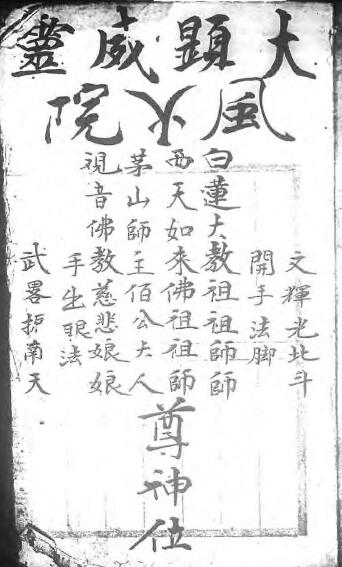 大顯威靈
風火院
文輝光北斗
開手法脚
白蓮大教祖祖師師
西天如來佛祖祖師
茅山師主佰公大人
視音佛教慈悲娘娘
手生眼法
武畧护南天
尊神位